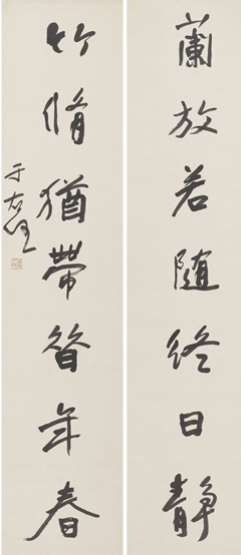 蘭放若隨終日靜
竹脩猶帶昔年春
于右任